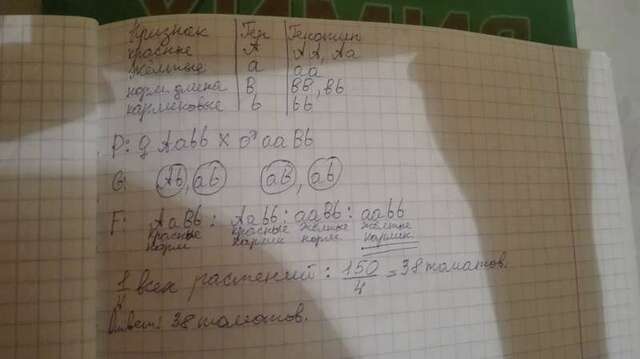 ХИМИЯ
Признак | Ген | Генотип
красные | A | AA, Aa
жёлтые | a | aa
норм. длина | B | BB, Bb
карликовые | b | bb
P: ♀ Aabb × ♂ aaBb
G: Ab, ab aB, ab
F: AaBb : Aabb : aaBb : aabb
красные красные жёлтые жёлтые
норм карлик норм. карлик.
1/4 всех растений : 150/4 = 38 томатов.
Ответ: 38 томатов.